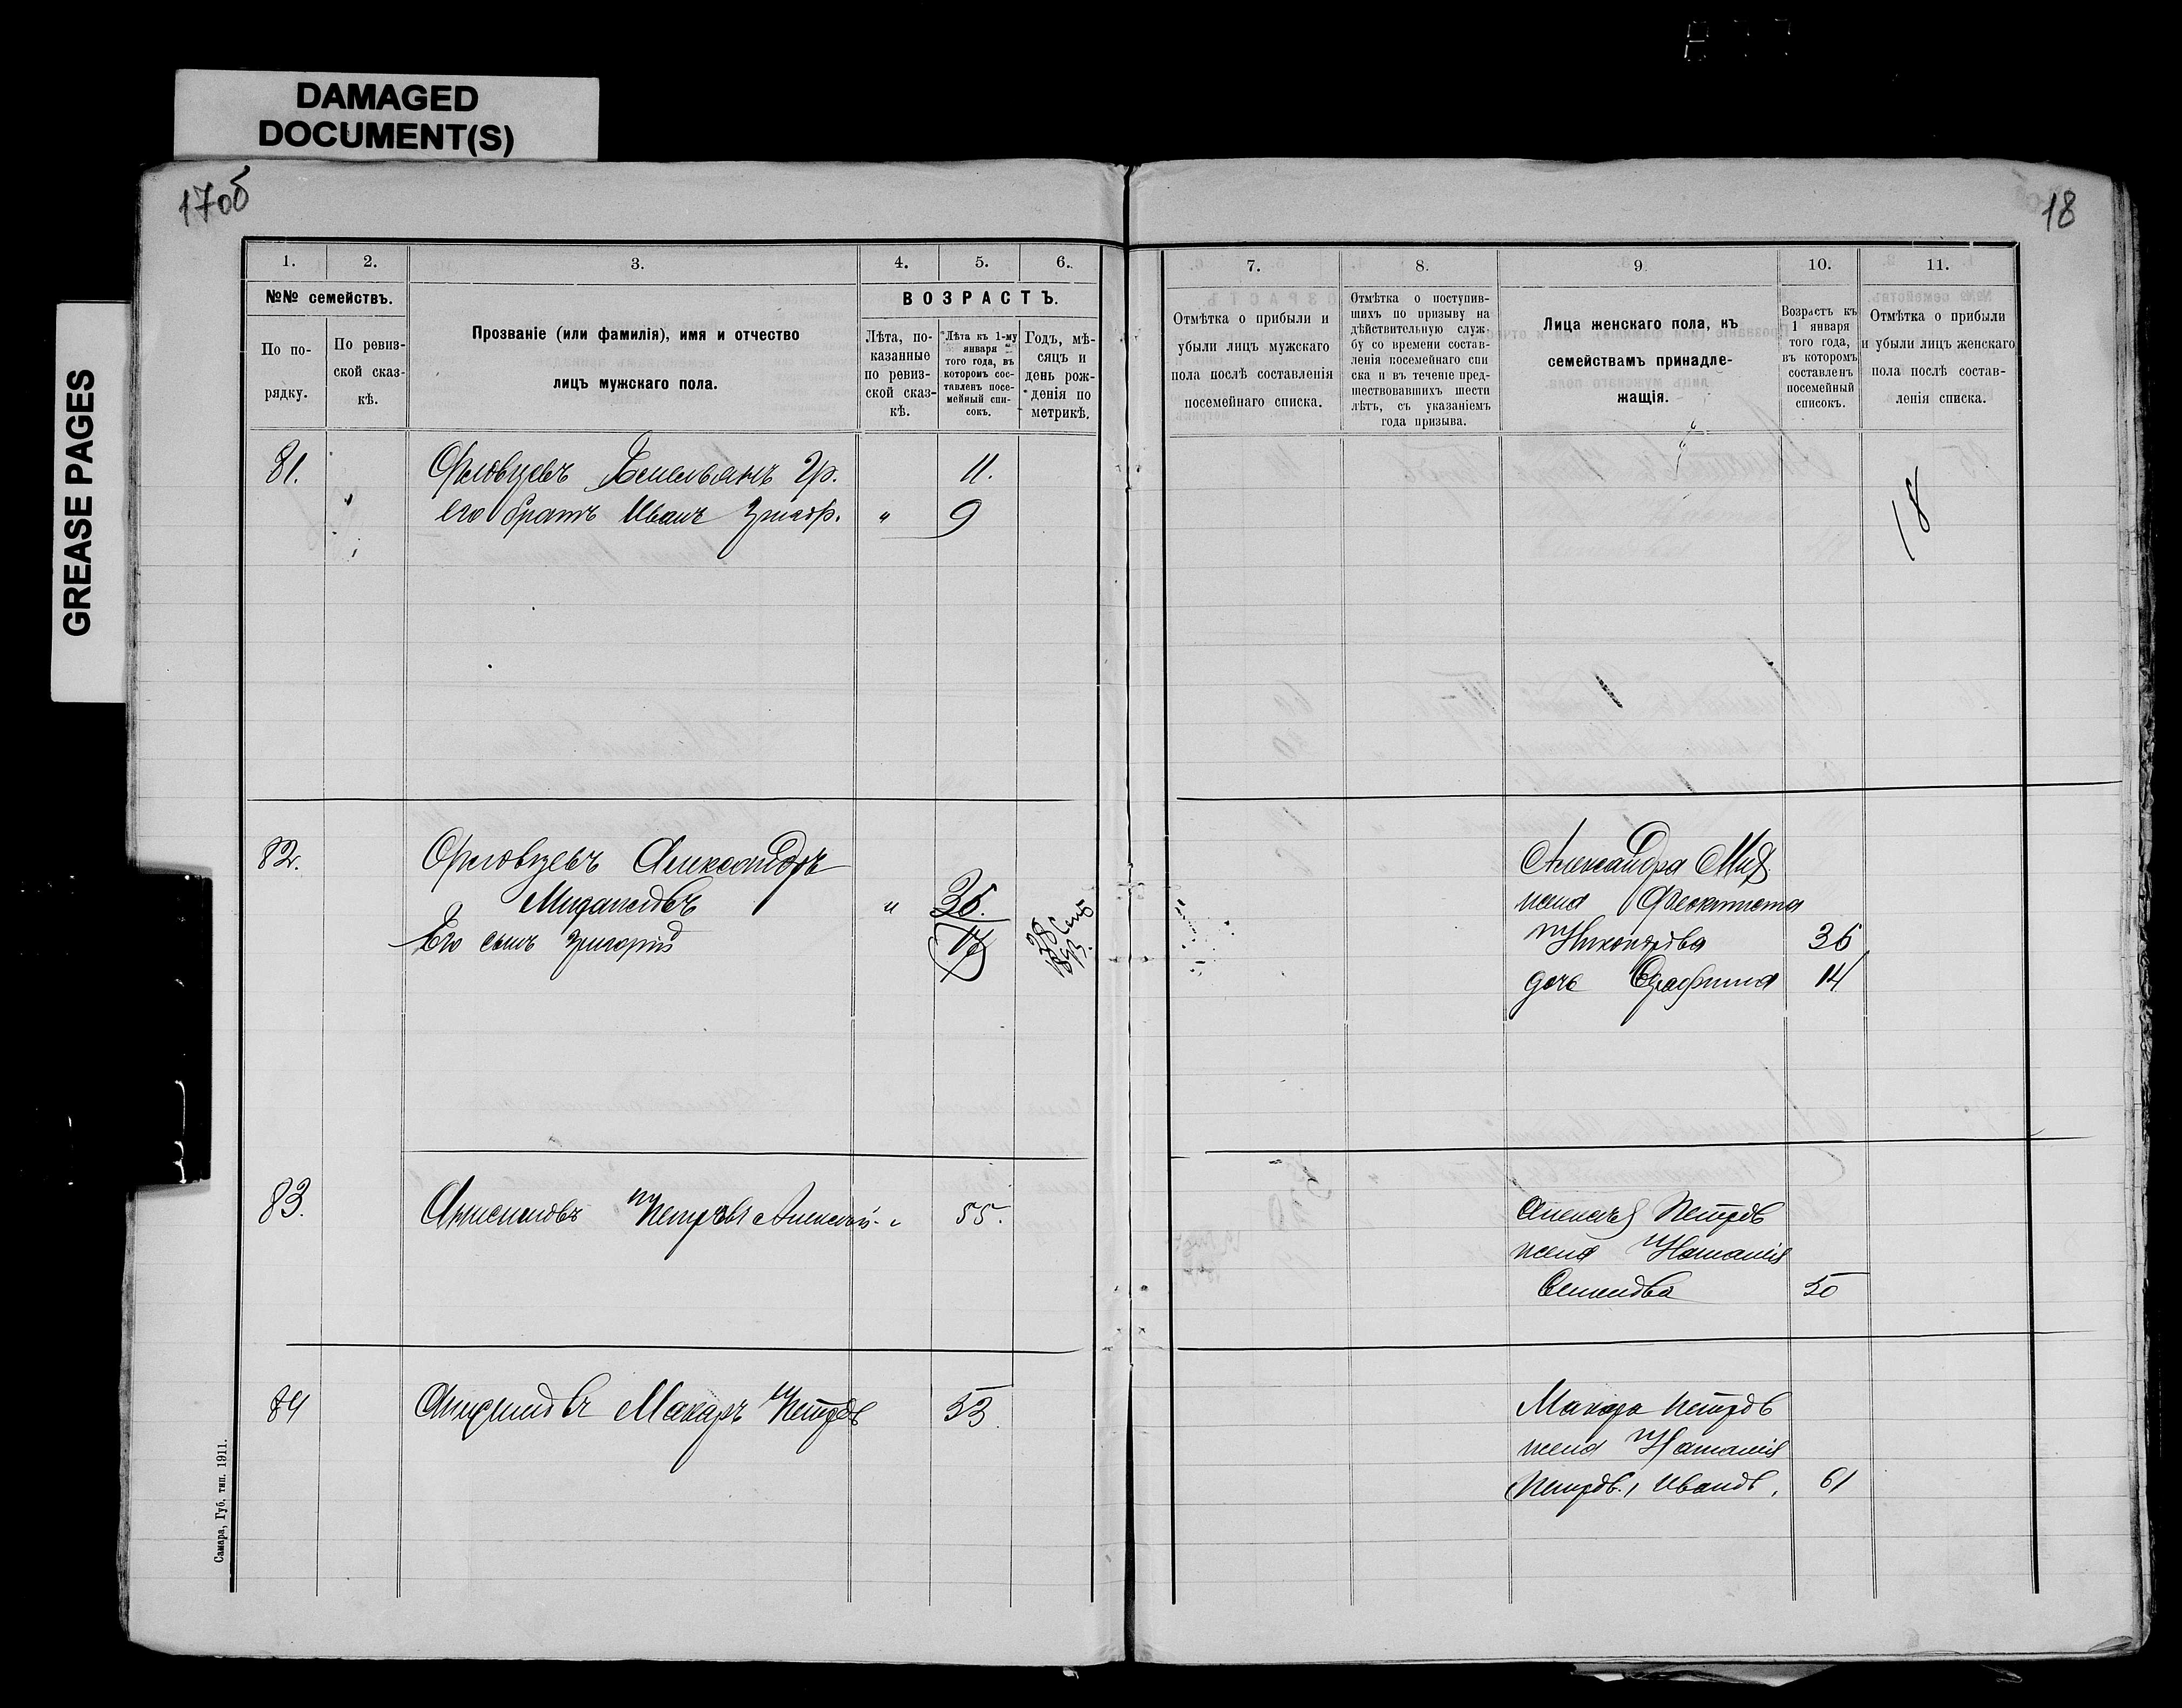 DAMAGED
DOCUMENT(S)
GREASE PAGES
17об
18
1.
2.
3.
4.
5.
6.
№№ семействъ.
По по-
рядку.
По ревиз-
ской сказ-
кѣ.
Прозваніе (или фамилія), имя и отчество
лицъ мужскаго пола.
ВОЗРАСТЪ.
Лѣта, по-
казанные
по ревиз-
ской сказ-
кѣ.
Лѣта къ 1-му
января
того года, въ
которомъ сос-
тавленъ посе-
мейный спи-
сокъ.
Годъ, мѣ-
сяцъ и
день рож-
денія по
метрикѣ.
81.
Гр.
11.
его братъ Иванъ Григор.
"
9
82.
Александръ
"
36.
Его сынъ Григорій
17
28 Сент
1893
83.
Петровъ Алексѣй
"
55.
84
Макаръ Петров
53
Самара, Губ. тип. 1911.
7.
8.
9.
10.
11.
Отмѣтка о прибыли и
убыли лицъ мужскаго
пола послѣ составленія
посемейнаго списка.
Отмѣтка о поступив-
шихъ по призыву на
дѣйствительную служ-
бу со времени состав-
ленія посемейнаго спи
ска и въ теченіе пред-
шествовавшихъ шести
лѣтъ, съ указаніемъ
года призыва.
Лица женскаго пола, къ
семействамъ принадле-
жащія.
Возрастъ къ
1 января
того года,
въ которомъ
составленъ
посемейный
списокъ.
Отмѣтка о прибыли
и убыли лицъ женскаго
пола послѣ состав-
ленія списка.
18
Александра Мих.
жена Феоктиста
Никонорова
36
дочь Серафима
14
Алексѣя Петров
жена Наталия
Семенова
50
Макара Петров
жена Наталия
Петров., Иванов.
61